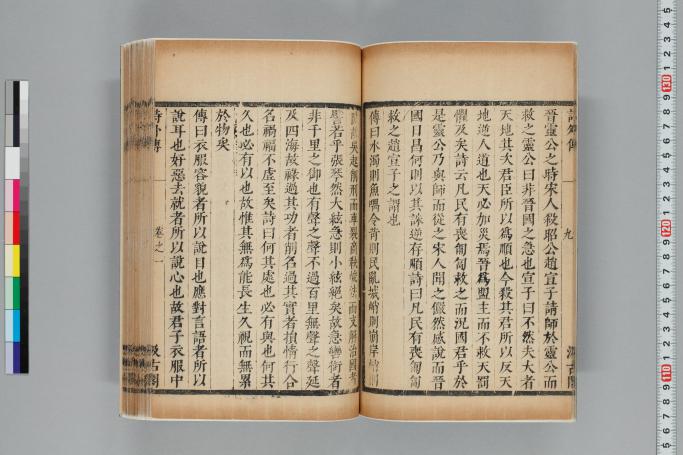 詩外傳
九
汲古閣
晉靈公之時宋人殺昭公趙宣子請師於靈公而
救之靈公曰非晉國之急也宣子曰不然夫大者
天地其次君臣所以爲順也今殺其君所以反天
地逆人道也天必加災焉晉爲盟主而不救天罰
懼及矣詩云凡民有喪匍匐救之而況國君乎於
是靈公乃與師而從之宋人聞之儼然感說而晉
國日昌何則以其誅逆存順詩曰凡民有喪匍匐
救之趙宣子之謂也
傳曰水濁則魚喁令苛則民亂城峭則崩岸峭則
陂故吳起削刑而車裂商鞅峻法而支解治國者
譬若乎張琴然大絃急則小絃絕矣故急轡銜者
非千里之御也有聲之聲不過百里無聲之聲延
及四海故祿過其功者削名過其實者損情行合
名禍福不虛至矣詩曰何其處也必有與也何其
久也必有以也故惟其無爲能長生久視而無累
於物矣
傳曰衣服容貌者所以說目也應對言語者所以
說耳也好惡去就者所以說心也故君子衣服中
詩外傳
卷之一
汲古閣
110
120
130